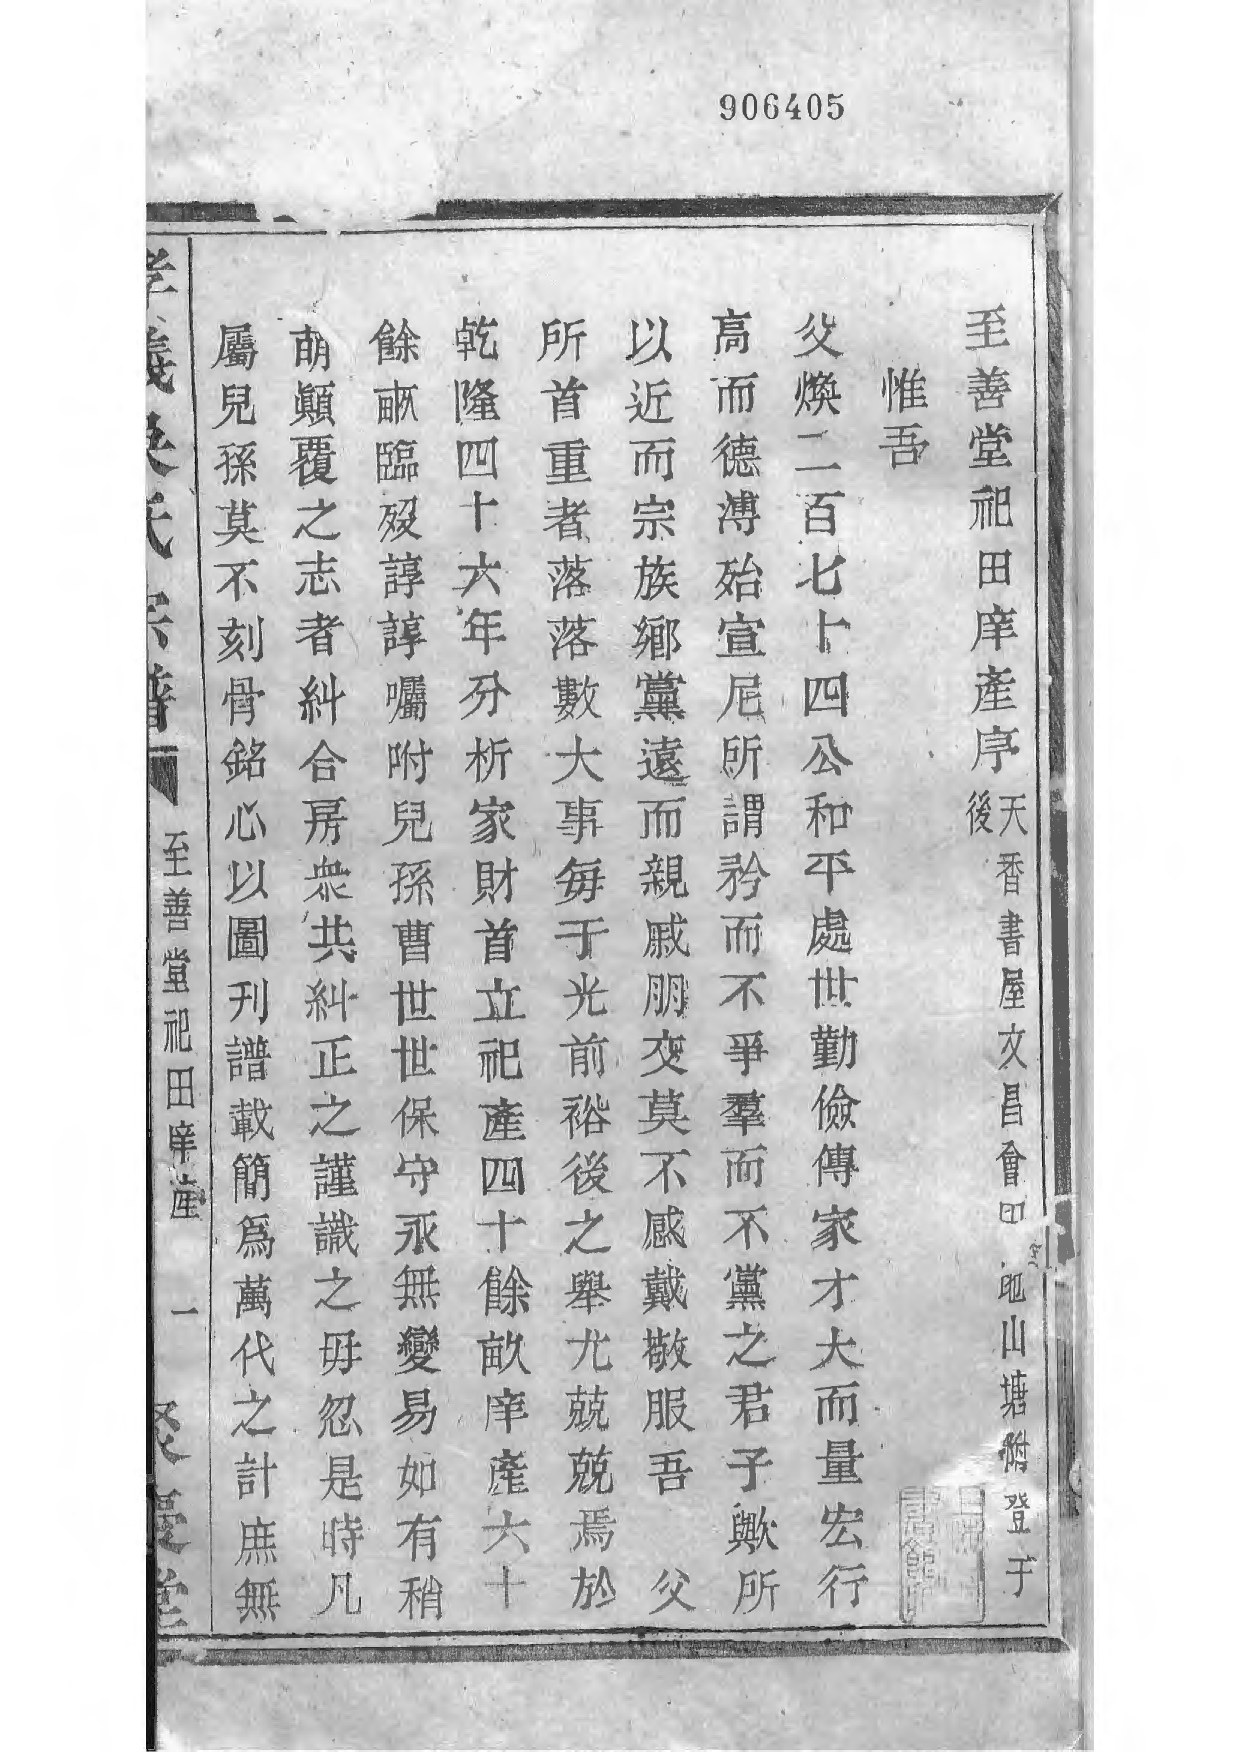 906405
至善堂祀田庠產序
天香書屋文昌會田地山塘附登于
後
惟吾
父煥二百七十四公和平處世勤儉傳家才大而量宏行
高而德溥殆宣尼所謂矜而不爭羣而不黨之君子歟所
以近而宗族鄉黨遠而親戚朋友莫不感戴敬服吾 父
所首重者落落數大事每于光前裕後之舉尤兢兢焉於
乾隆四十六年分析家財首立祀產四十餘畝庠產六十
餘畝臨歿諄諄囑咐兒孫曹世世保守永無變易如有稍
萌顛覆之志者糾合房衆共糾正之謹識之毋忽是時凡
屬兒孫莫不刻骨銘心以圖刊譜載簡爲萬代之計庶無
孝義吳氏宗譜
至善堂祀田庠產
一
堂